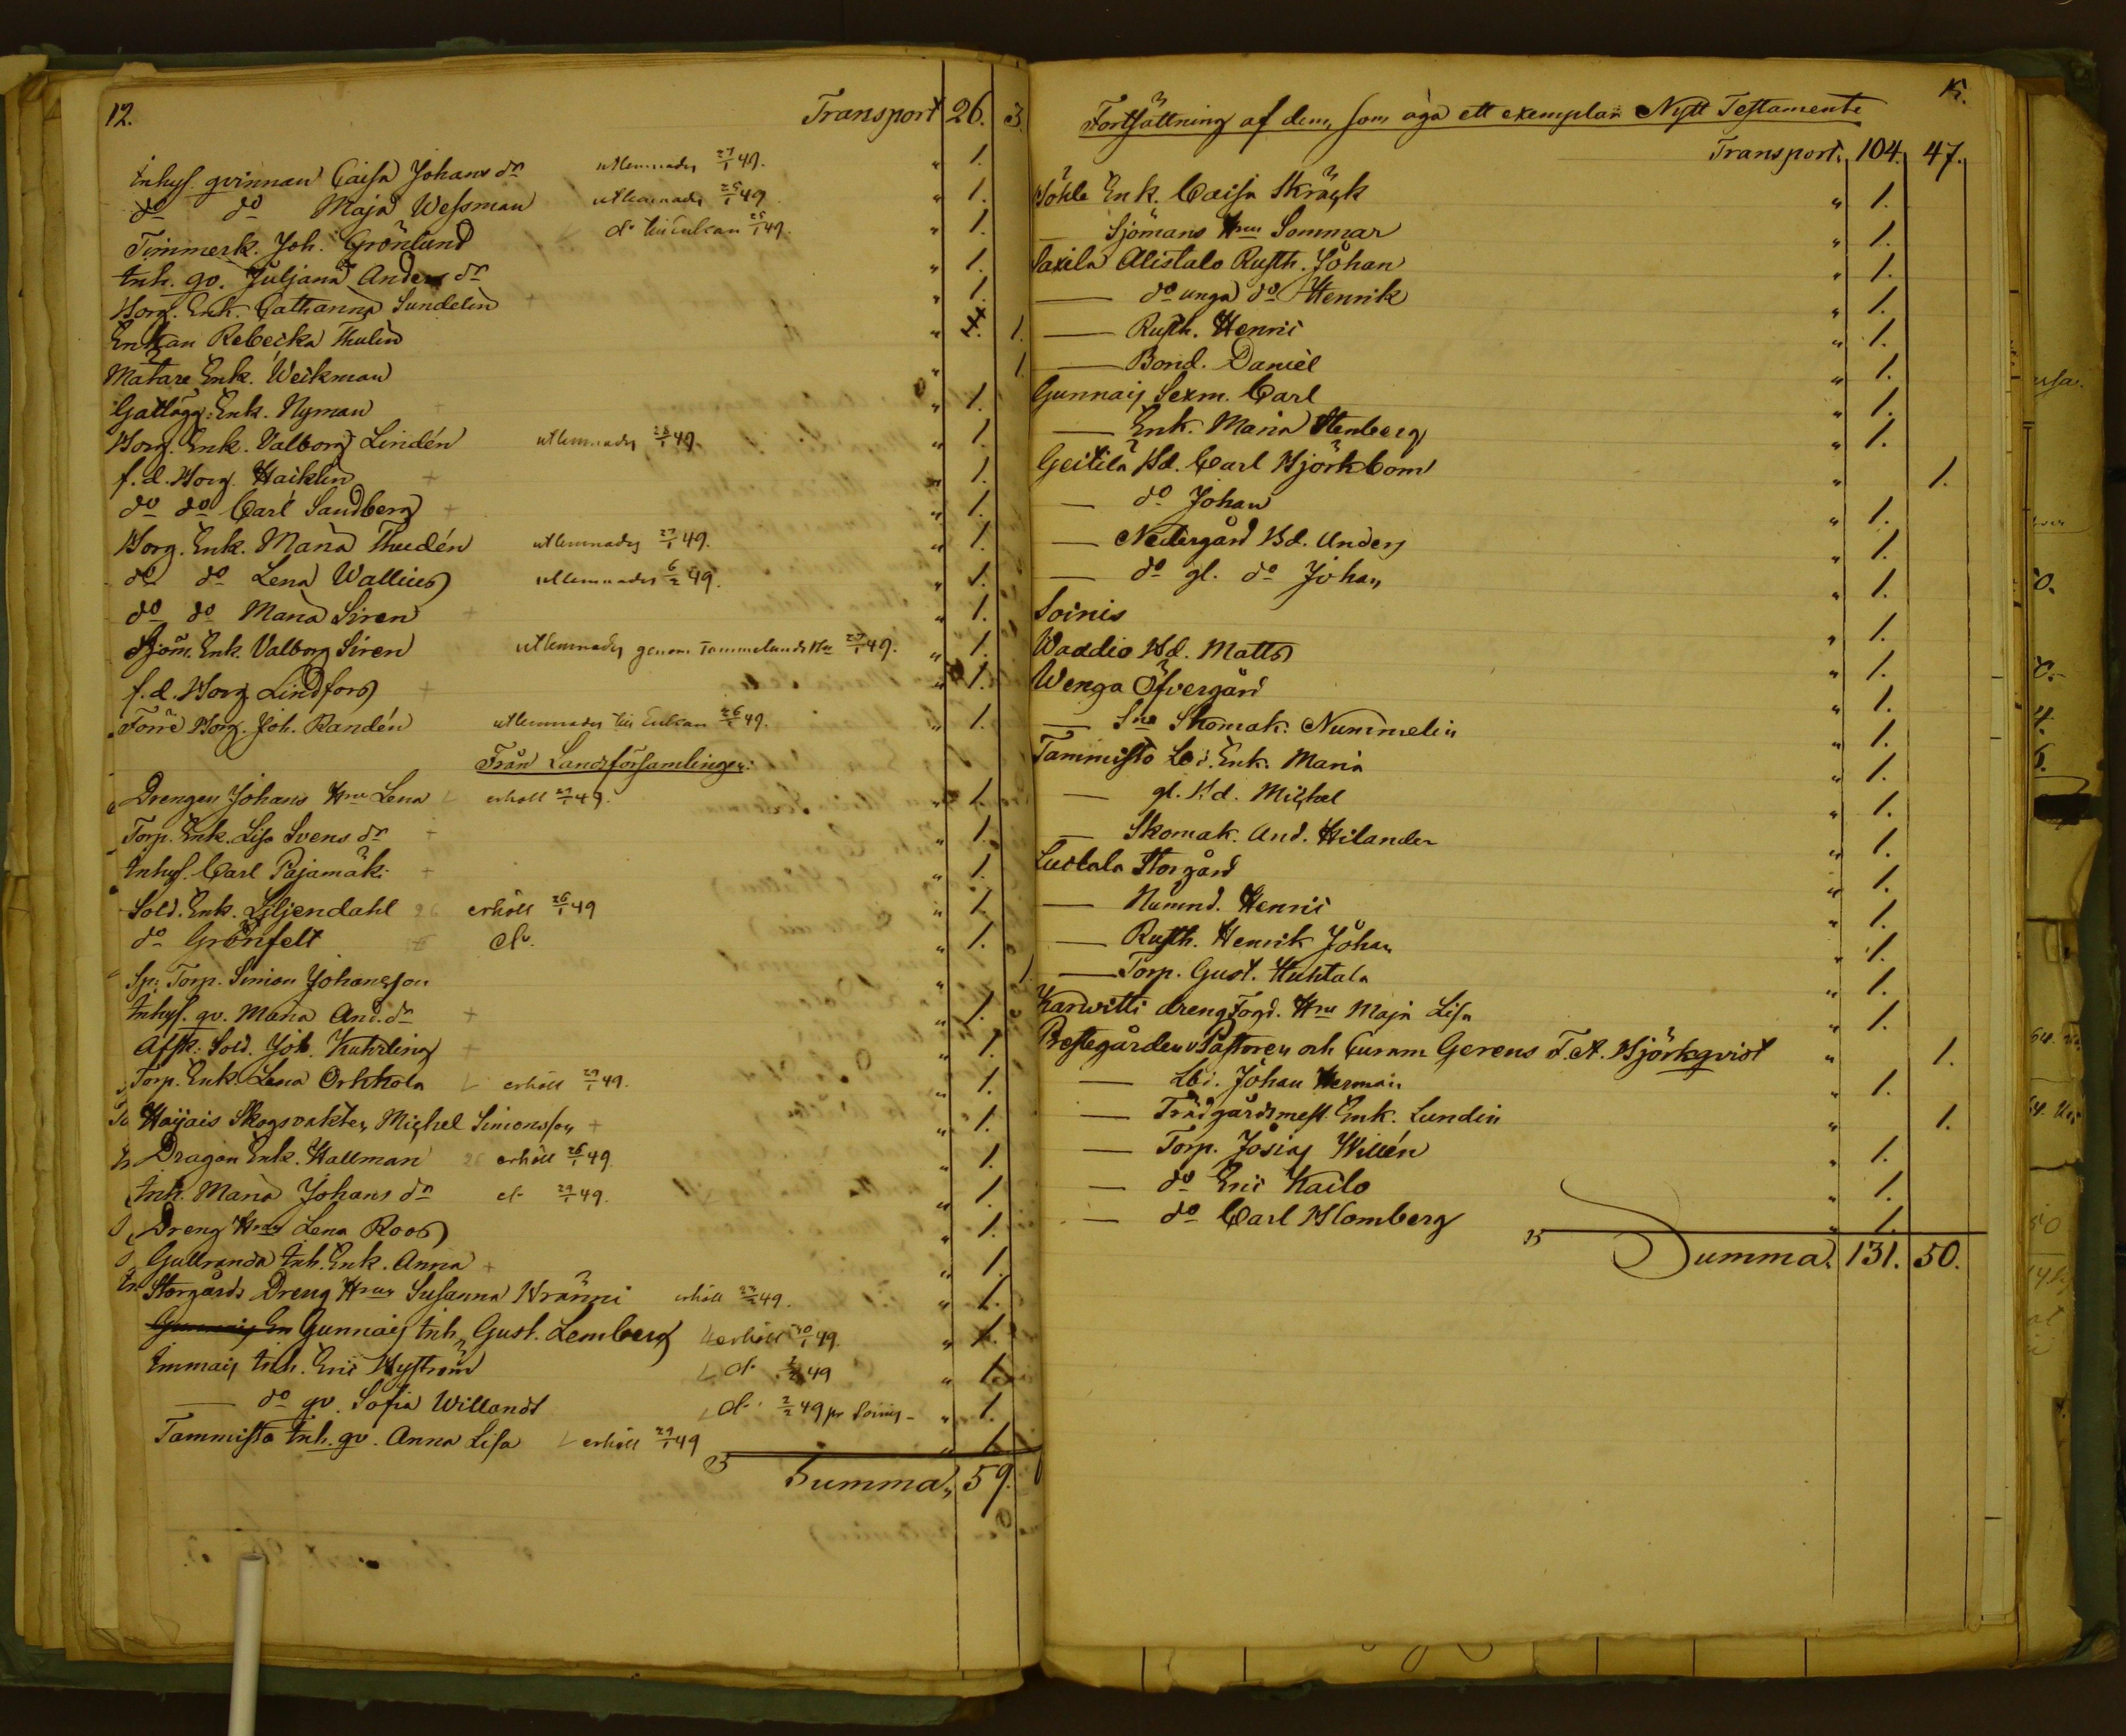 12.
Transport 26. 3.
Inhys. qvinnan Caisa Johans dr utlemnades 27/1 49. " 1.
do do Maja Wessman utlemnades 25/1 49 " 1.
Timmerk. Joh. Grönlund do till Enkan 25/1 49. " 1.
Inh. qv. Juljana Anders dr " 1.
Borg. Enk. Catharina Sundelin + " 1.
Enkan Rebecka Thulin " 1. 1.
Mätare Enk. Weckman " 1
Gatlägg. Enk. Nyman " 1.
Borg. Enk. Valborg Lindén utlemnades 28/1 49. " 1.
f.d. Borg. Haiklin + " 1.
do do Carl Sandberg + " 1.
Borg. Enk. Maria Thudén utlemnades 27/1 49. " 1.
do do Lena Wallius utlemnades 6/2 49. " 1.
do do Maria Siren + " 1.
Sjöm. Enk. Valborg Siren utlemnades genom Tammelunds 29/1 49. " 1.
f.d. Borg Lindfors + " 1.
Förre Borg. Joh. Randén utlemnades till Enkan 26/1 49. " 1.
Från Landsförsamlingen:
Drengen Johans Hru Lena erhöll 29/1 49. " 1.
Torp. Enk. Lisa Svens dr + " 1.
Inhys. Carl Pajamäki + " 1.
Sold. Enk. Liljendahl 26 erhöll 26/1 49 " 1.
do Grönfelt do. " 1.
Sp: Torp. Simon Johansson " 1.
Inhys. qv. Maria And. dr + " 1.
Afsk: Sold. Joh. Kuhrling + " 1.
Torp. Enk. Lena Orhkola erhöll 29/1 49. " 1.
Haijais Skogsvakten Michel Simonsson + " 1.
Dragon Enk. Hallman 26 erhöll 26/1 49. " 1.
Inh. Maria Johans dr do 29/1 49. " 1.
Dreng Hrus Lena Roos " 1.
Gullranda Inh. Enk. Anna + " 1.
Storgårds Dreng Hrus Susanna Wränni erhöll 27/2 49. " 1.
Gunnais Inh. Gust. Lemberg erhöll 30/1 49. " 1.
Immais Inh. Eric Nyström do 2/2 49 " 1.
— do qv. Sofia Willandt do. 2/2 49 pr Soinis - " 1.
Tammisto Inh. qv. Anna Lisa erhöll 29/1 49 " 1.
Summa, 59.
Fortsättning af dem, som äga ett exemplar Nytt Testamente
Transport. 104. 47.
Pöhle Enk. Caisa Skräck " 1.
— Sjömans Hru Sommar " 1.
Saxila Alistalo Rusth. Johan " 1.
— do unga do Henrik " 1.
— Rusth. Henric " 1.
— Bond. Daniel " 1.
Gunnais Sexm. Carl " 1.
— Enk. Maria Stenberg " 1.
Geitilä Bd. Carl Björkbom " 1.
— do Johan " 1.
— Nedergård Bd. Anders " 1.
— do gl. do Johan " 1.
Soinis " 1.
Waddio Bd. Matts " 1.
Wenga Öfvergård " 1.
— Sne Skomak. Nummelin " 1.
Tammisto Ldi. Enk. Maria " 1.
— gl. Bd. Michel " 1.
— Skomak. And. Hilander " 1.
Luolala Storgård " 1.
— Nämnd. Henric " 1.
— Rusth. Henrik Johan " 1.
— Torp. Gust. Huhtala " 1.
Karwitti drengfogd. Hru Maja Lisa " 1.
Prestegården vPastoren och Curam Gerens F. A. Björkqvist " 1.
— Ldi. Johan Herman " 1.
— Trädgårdsmest. Enk. Lundin " 1.
— Torp. Josias Willén " 1.
— do Eric Kailo " 1.
— do Carl Blomberg " 1.
Summa. 131. 50.